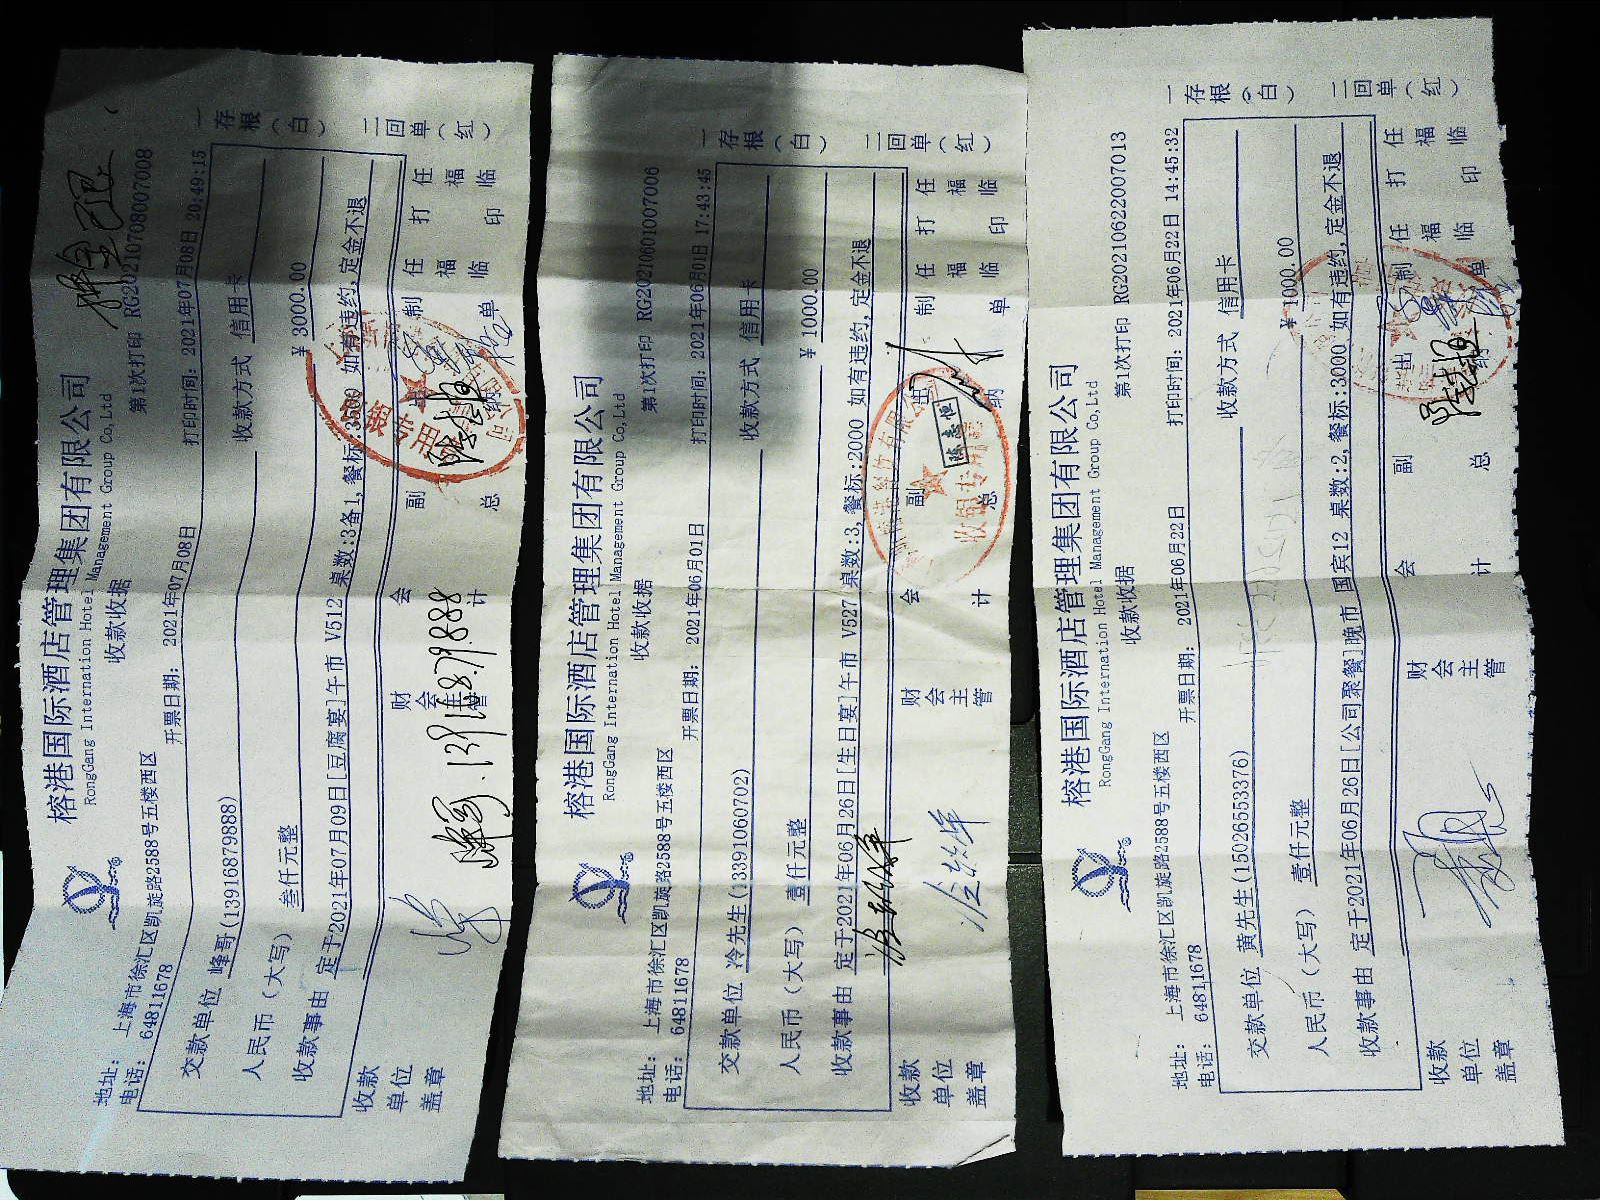 榕港国际酒店管理集团有限公司
RongGang International Hotel Management Group Co,Ltd
收款收据
第1次打印 RG20210708007008
地址: 上海市徐汇区凯旋路2588号五楼西区
电话: 64811678
开票日期: 2021年07月08日
打印时间: 2021年07月08日 20:49:15
交款单位 峰哥(13916879888)
收款方式 信用卡
人民币（大写） 叁仟元整
¥ 3000.00
收款事由 定于2021年07月09日[豆腐宴]午市 V512 桌数:3备1,餐标:3500 如有违约,定金不退
一存根（白）
二回单（红）
收款单位盖章
财会主管
会计
副总
制单 任福临
打印 任福临
139168.79.888
榕港国际酒店管理集团有限公司
RongGang International Hotel Management Group Co,Ltd
收款收据
第1次打印 RG20210601007006
地址: 上海市徐汇区凯旋路2588号五楼西区
电话: 64811678
开票日期: 2021年06月01日
打印时间: 2021年06月01日 17:43:45
交款单位 冷先生(13391060702)
收款方式 信用卡
人民币（大写） 壹仟元整
¥ 1000.00
收款事由 定于2021年06月26日[生日宴]午市 V527 桌数:3,餐标:2000 如有违约,定金不退
一存根（白）
二回单（红）
收款单位盖章
财会主管
会计
副总
出纳
制单 任福临
打印 任福临
榕港国际酒店管理集团有限公司
RongGang International Hotel Management Group Co,Ltd
收款收据
第1次打印 RG20210622007013
地址: 上海市徐汇区凯旋路2588号五楼西区
电话: 64811678
开票日期: 2021年06月22日
打印时间: 2021年06月22日 14:45:32
交款单位 黄先生(15026553376)
收款方式 信用卡
人民币（大写） 壹仟元整
¥ 1000.00
收款事由 定于2021年06月26日[公司聚餐]晚市 国宾12 桌数:2,餐标:3000 如有违约,定金不退
一存根（白）
二回单（红）
收款单位盖章
财会主管
会计
副总
出纳
制单 任福临
打印 任福临